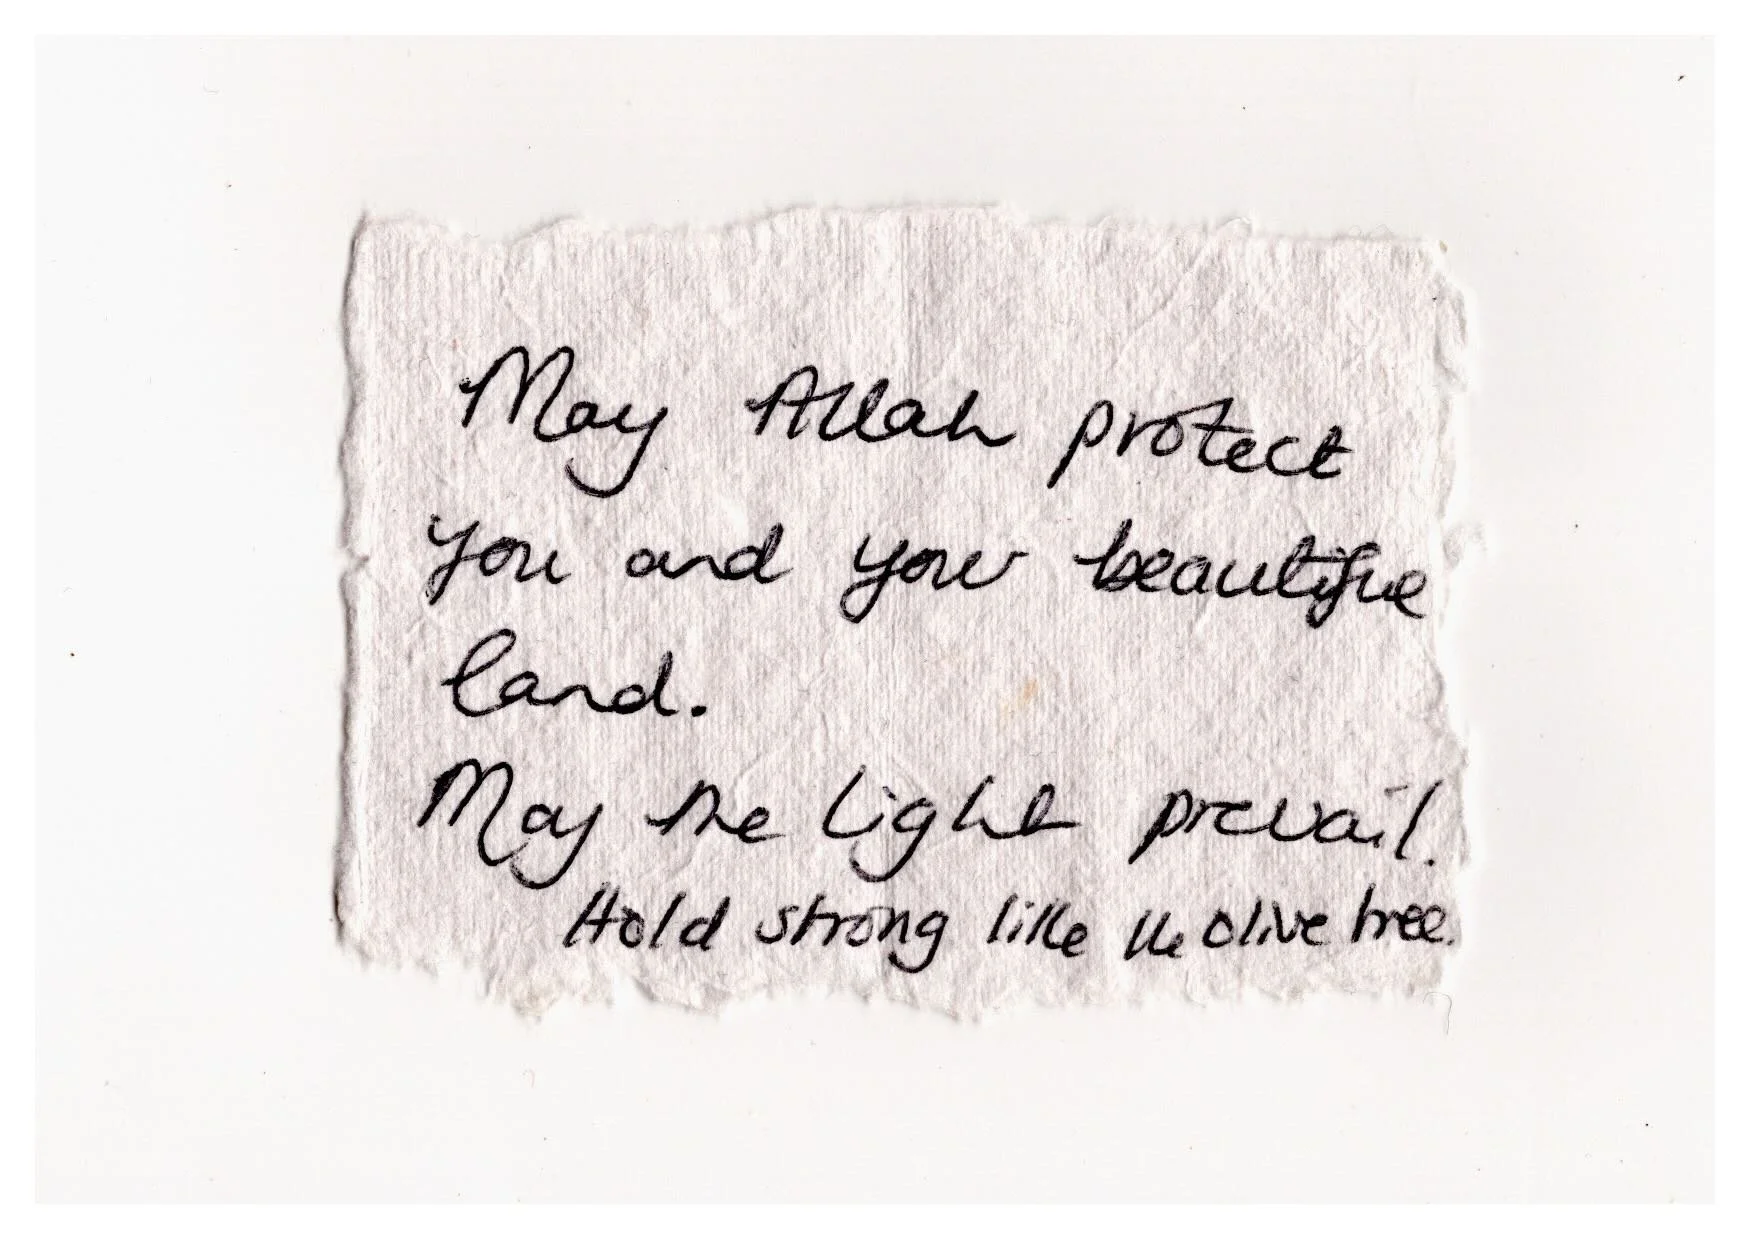 May Allah protect
you and your beautiful
land.
May the light prevail.
Hold strong like the olive tree.